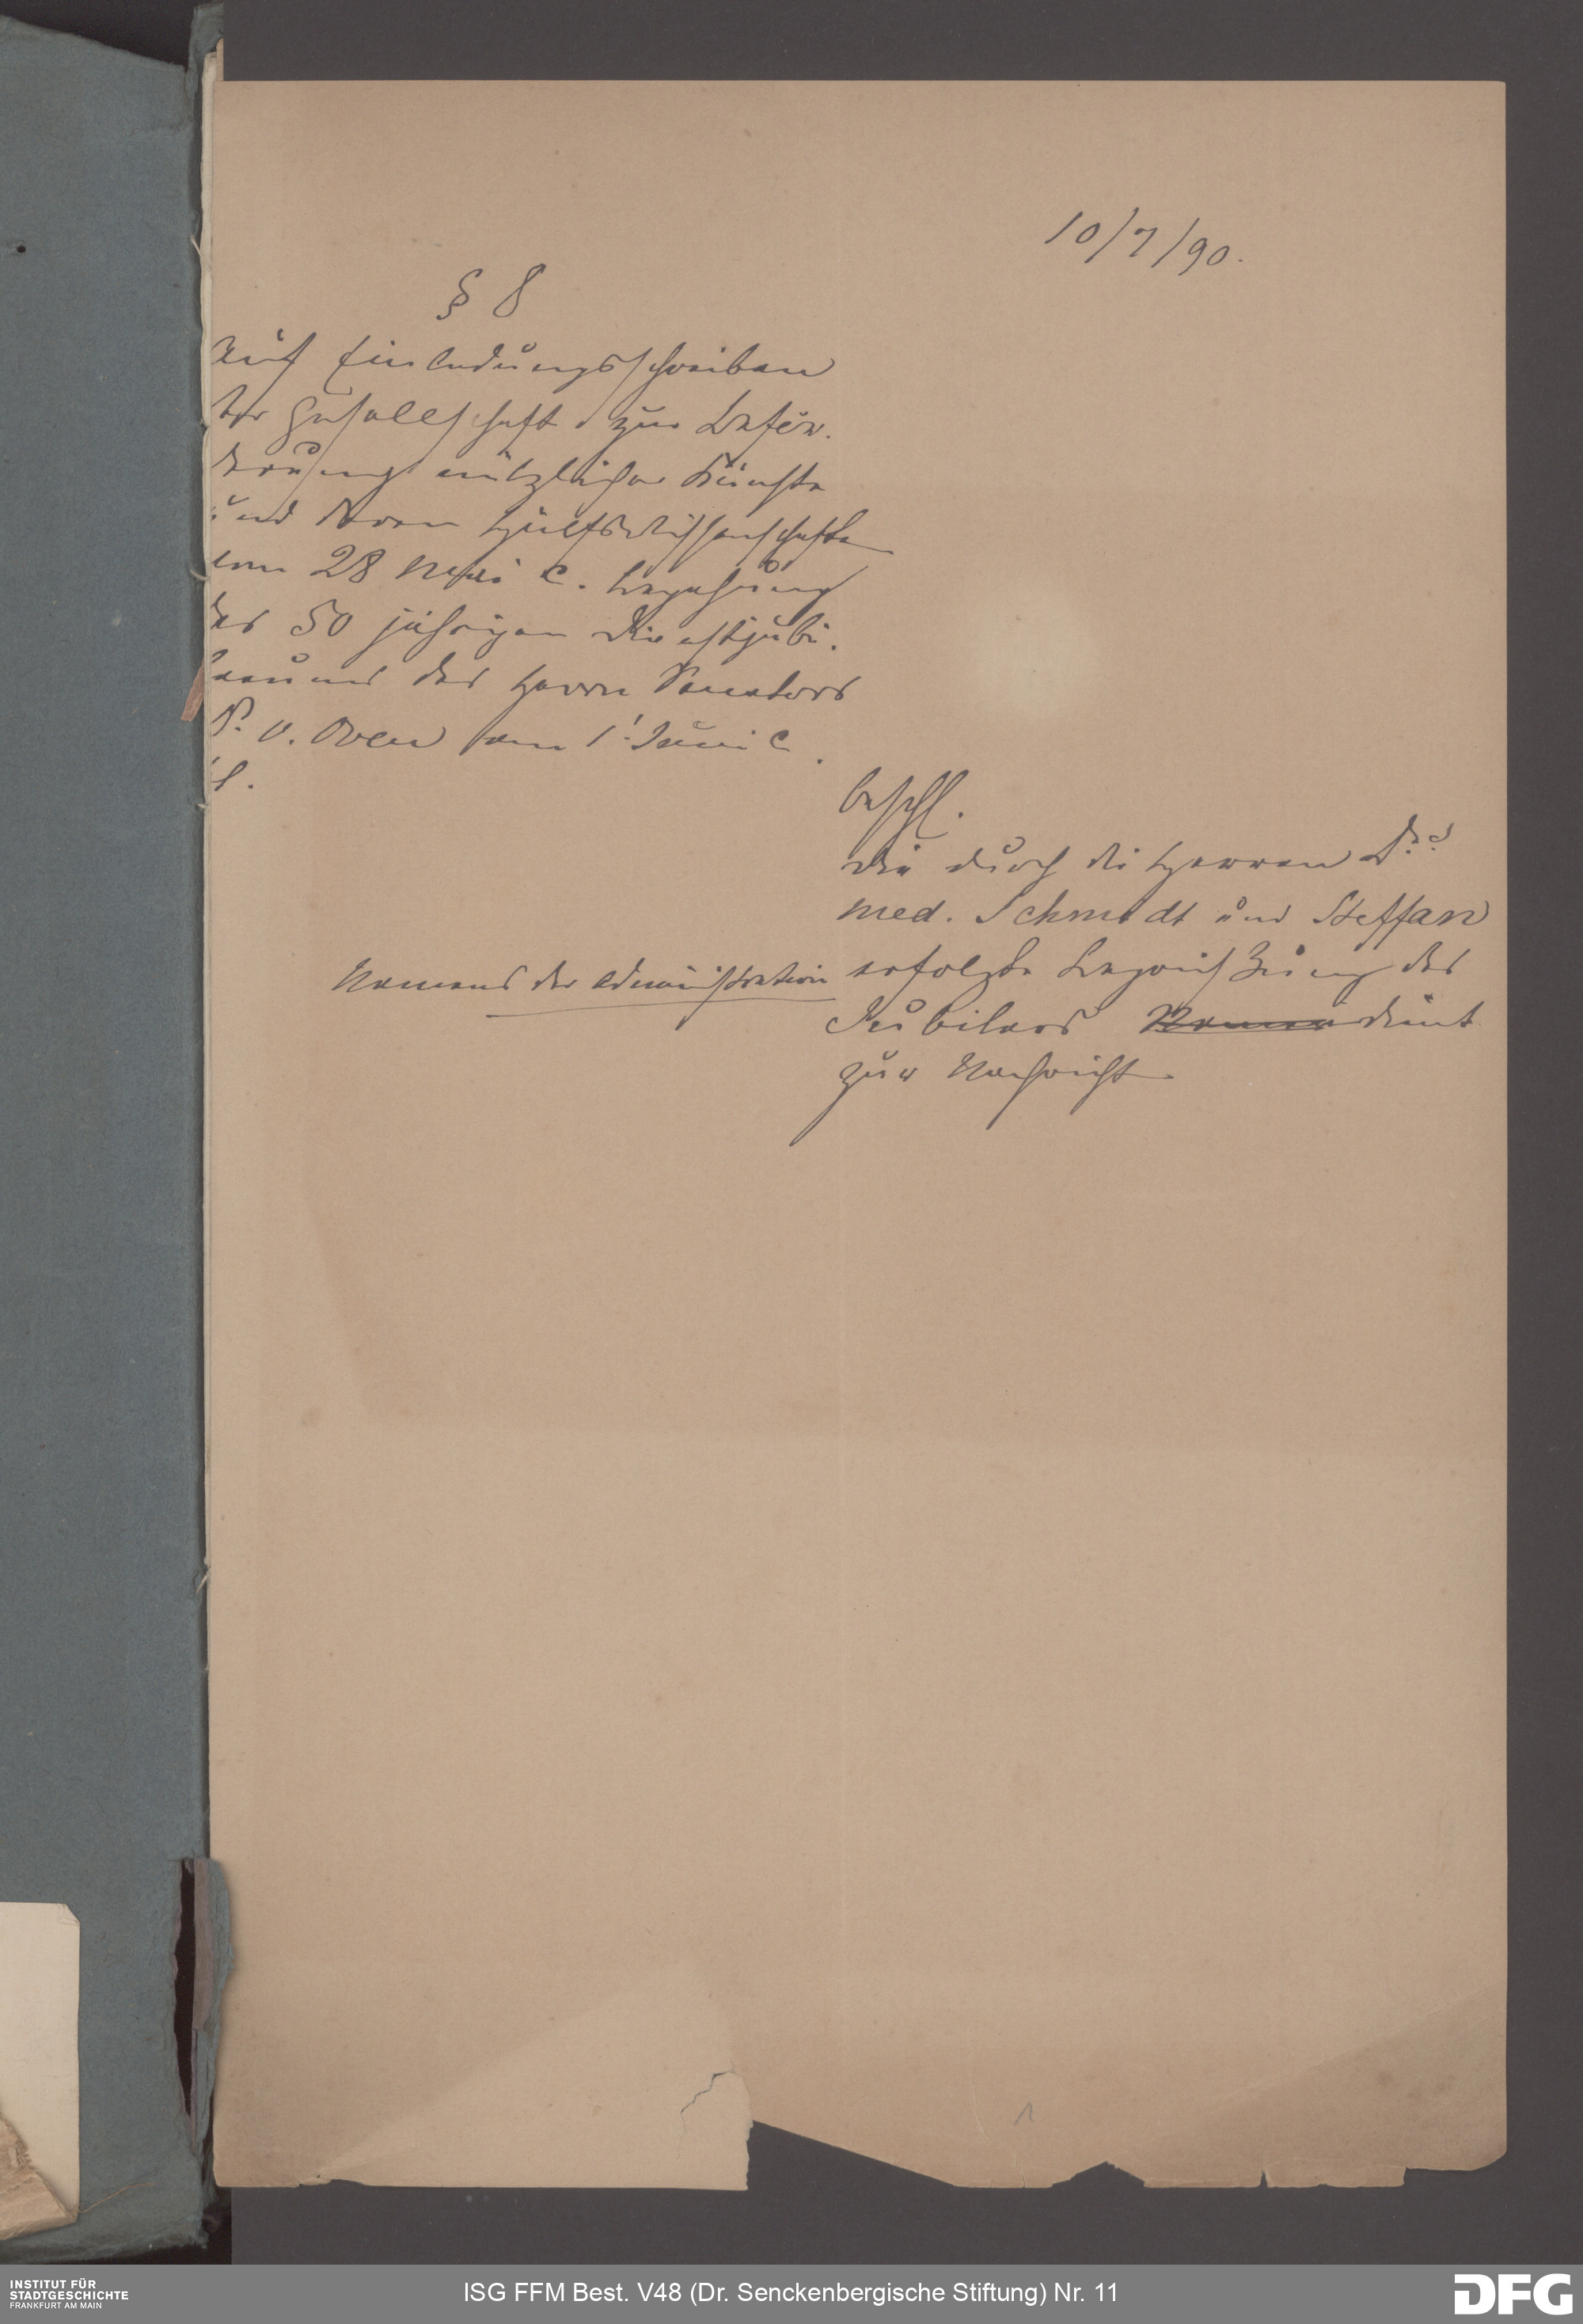 10/7/90.
§ 8
Auf Einladungsschreiben
der Gesellschaft zur Beför-
derung nützlicher Künste
und deren Hülfswissenschaften
vom 28 Mai c. Begehung
des 50 jährigen Dienstjubi-
laeums des Herrn Senators
v. Oven am 1. Juni c.
beschl.
die durch die Herren Drs
med. Schmidt und Steffan
Namens der Administration erfolgte Begrüßung des
Jubilars dient
zur Nachricht.
1
INSTITUT FÜR
STADTGESCHICHTE
FRANKFURT AM MAIN
ISG FFM Best. V48 (Dr. Senckenbergische Stiftung) Nr. 11
DFG